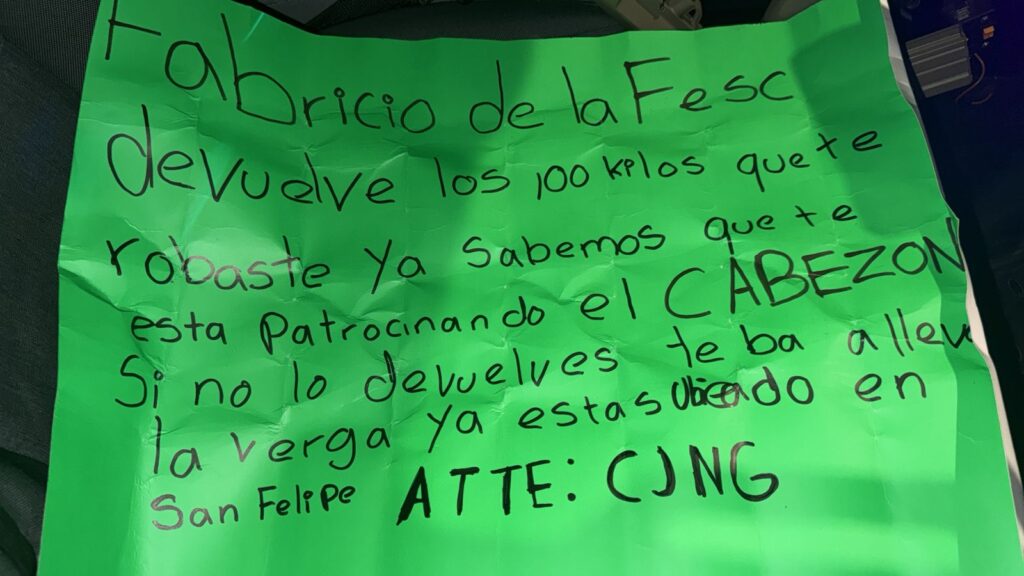 Fabricio de la Fesc
devuelve los 100 kilos que te
robaste ya sabemos que te
esta patrocinando el CABEZON
Si no lo devuelves te ba a llev
la verga ya estas Ubicado en
San Felipe ATTE: CJNG